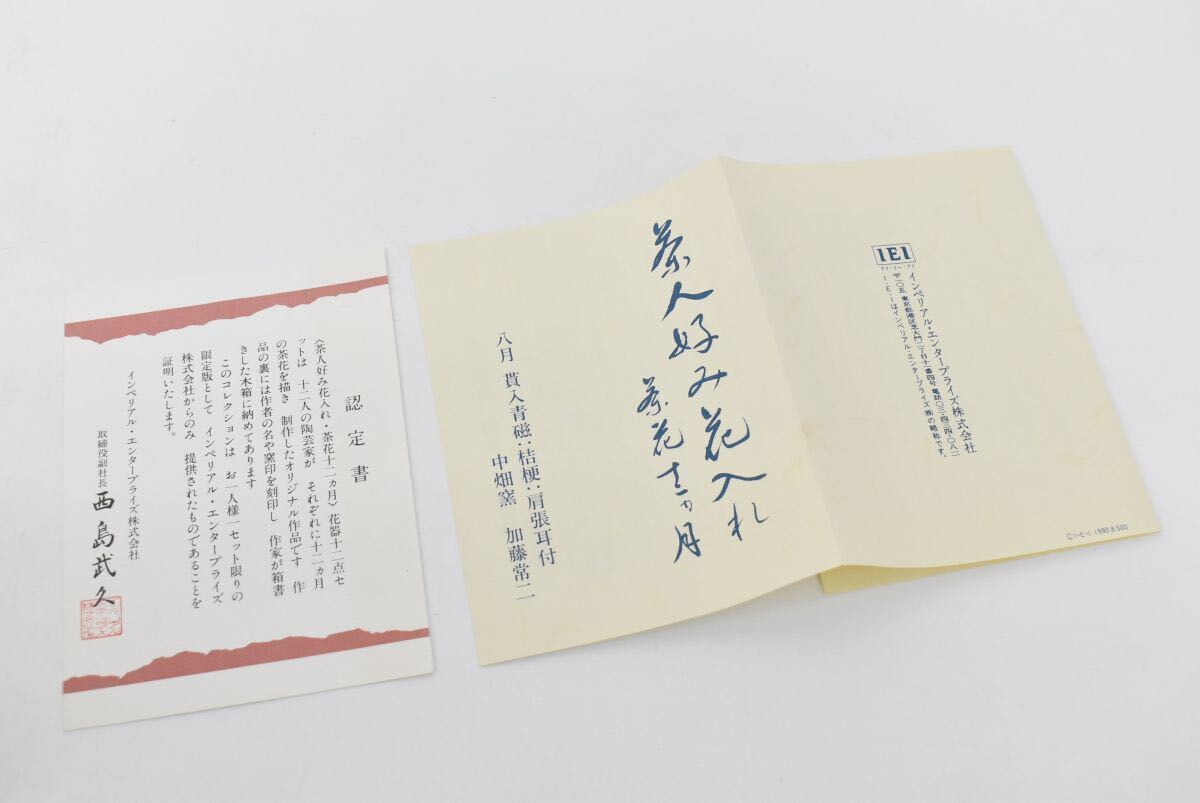 認定書
〈茶人好み花入れ・茶花十二ヵ月〉花器十二点セ
ットは 十二人の陶芸家が それぞれに十二ヵ月
の茶花を描き 制作したオリジナル作品です 作
品の裏には作者の名や窯印を刻印し 作家が箱書
きした木箱に納めてあります
このコレクションは お一人様一セット限りの
限定版として インペリアル・エンタープライズ
株式会社からのみ 提供されたものであることを
証明いたします。
インペリアル・エンタープライズ株式会社
取締役副社長 西島武久
茶人好み花入れ
茶花十二ヵ月
八月 貫入青磁:桔梗:肩張耳付
中畑窯 加藤常二
IEI
アイ・イー・アイ
インペリアル・エンタープライズ株式会社
〒一〇五 東京都港区芝大門二丁目十二番四号
I・E・Iはインペリアル・エンタープライズ㈱の略称です。
©I・E・I 1990.8.500